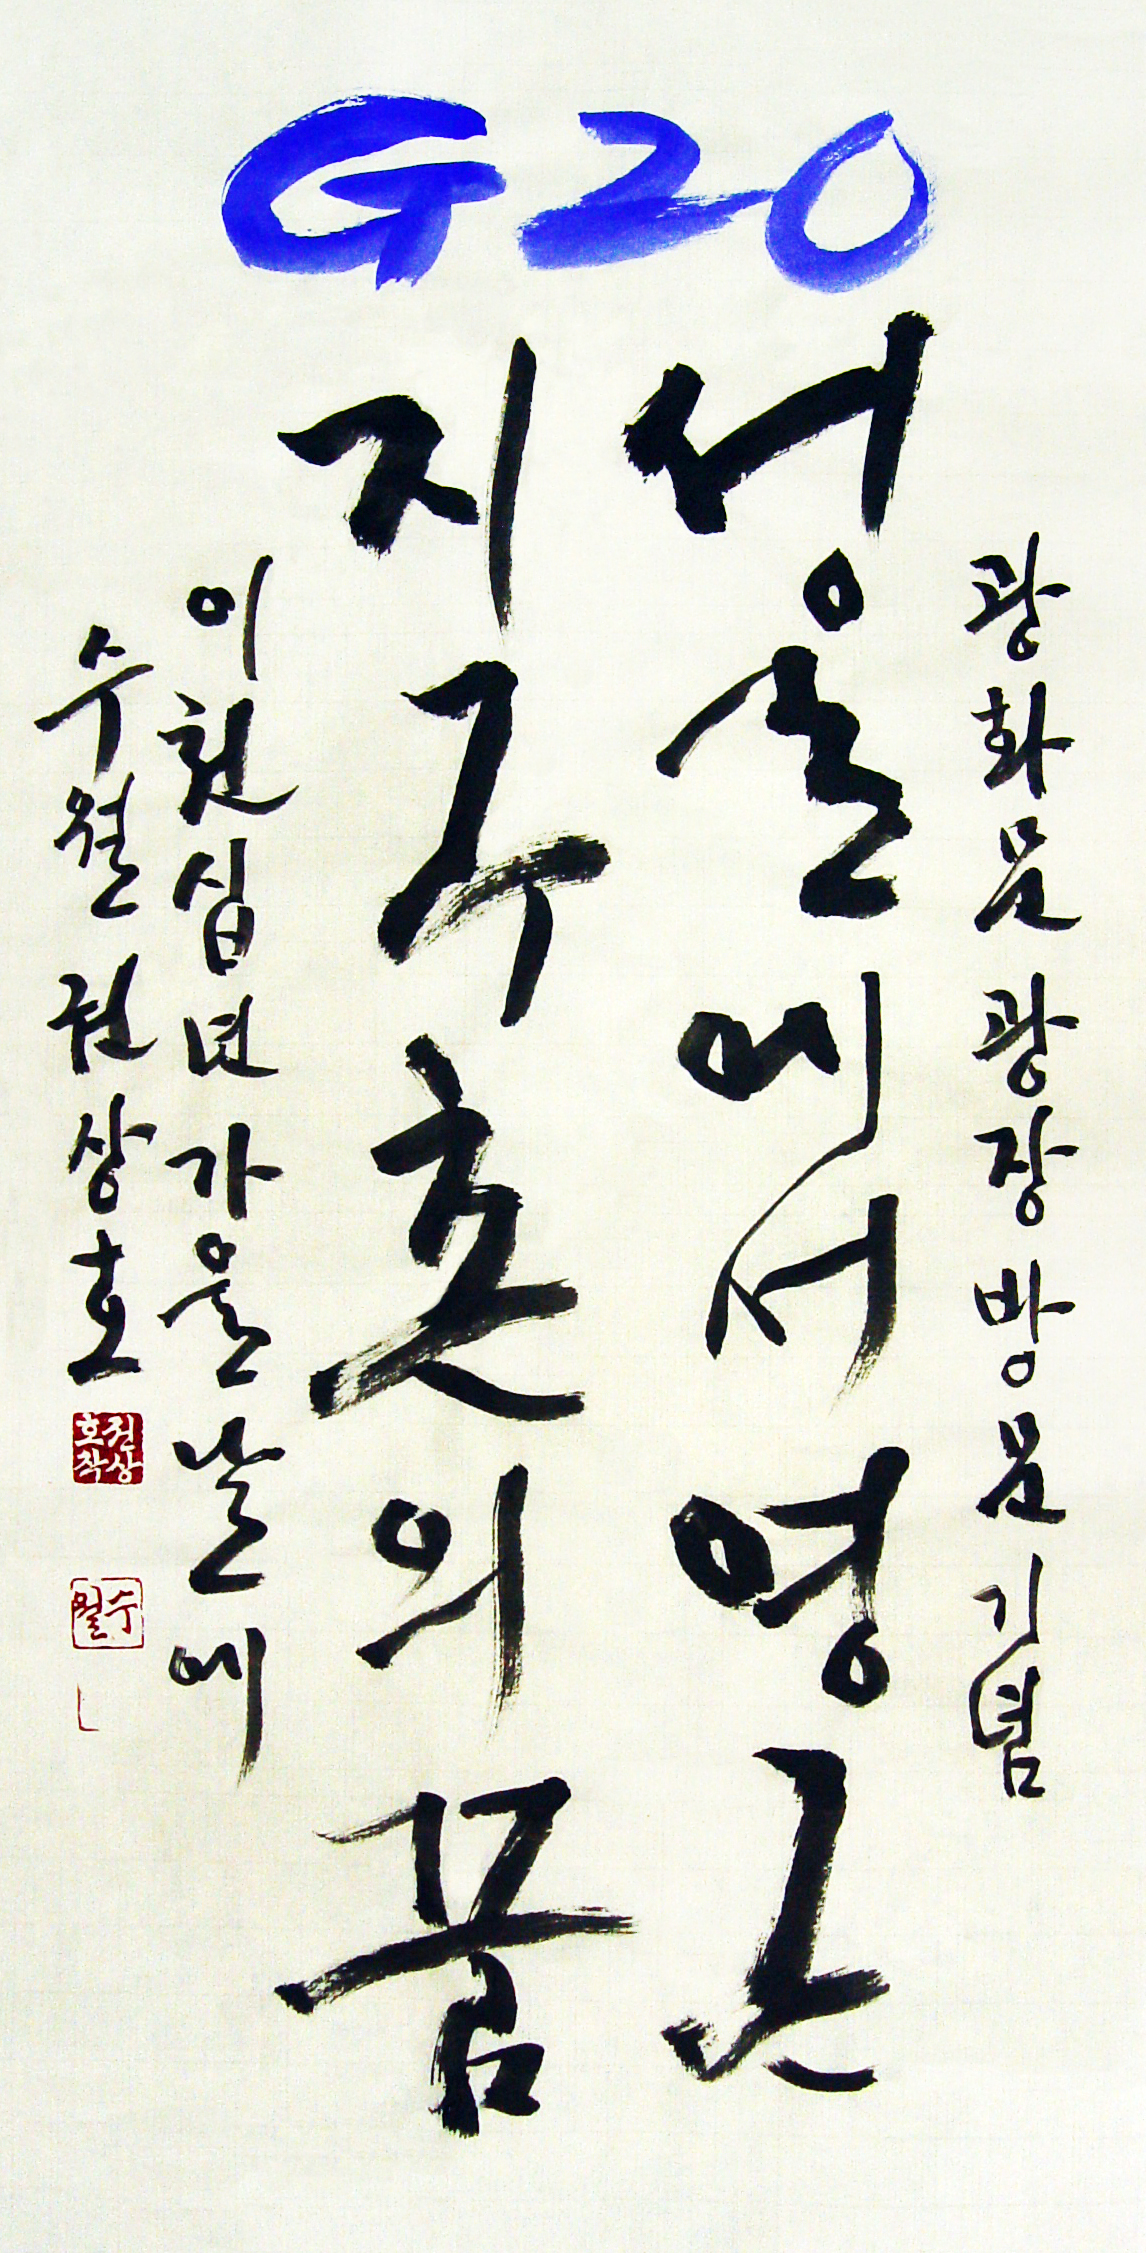 G20
광화문 광장 방문 기념
서울에서 영근
지구촌의 꿈
이천십년 가을날에
수월 권상호
권상호작
수월